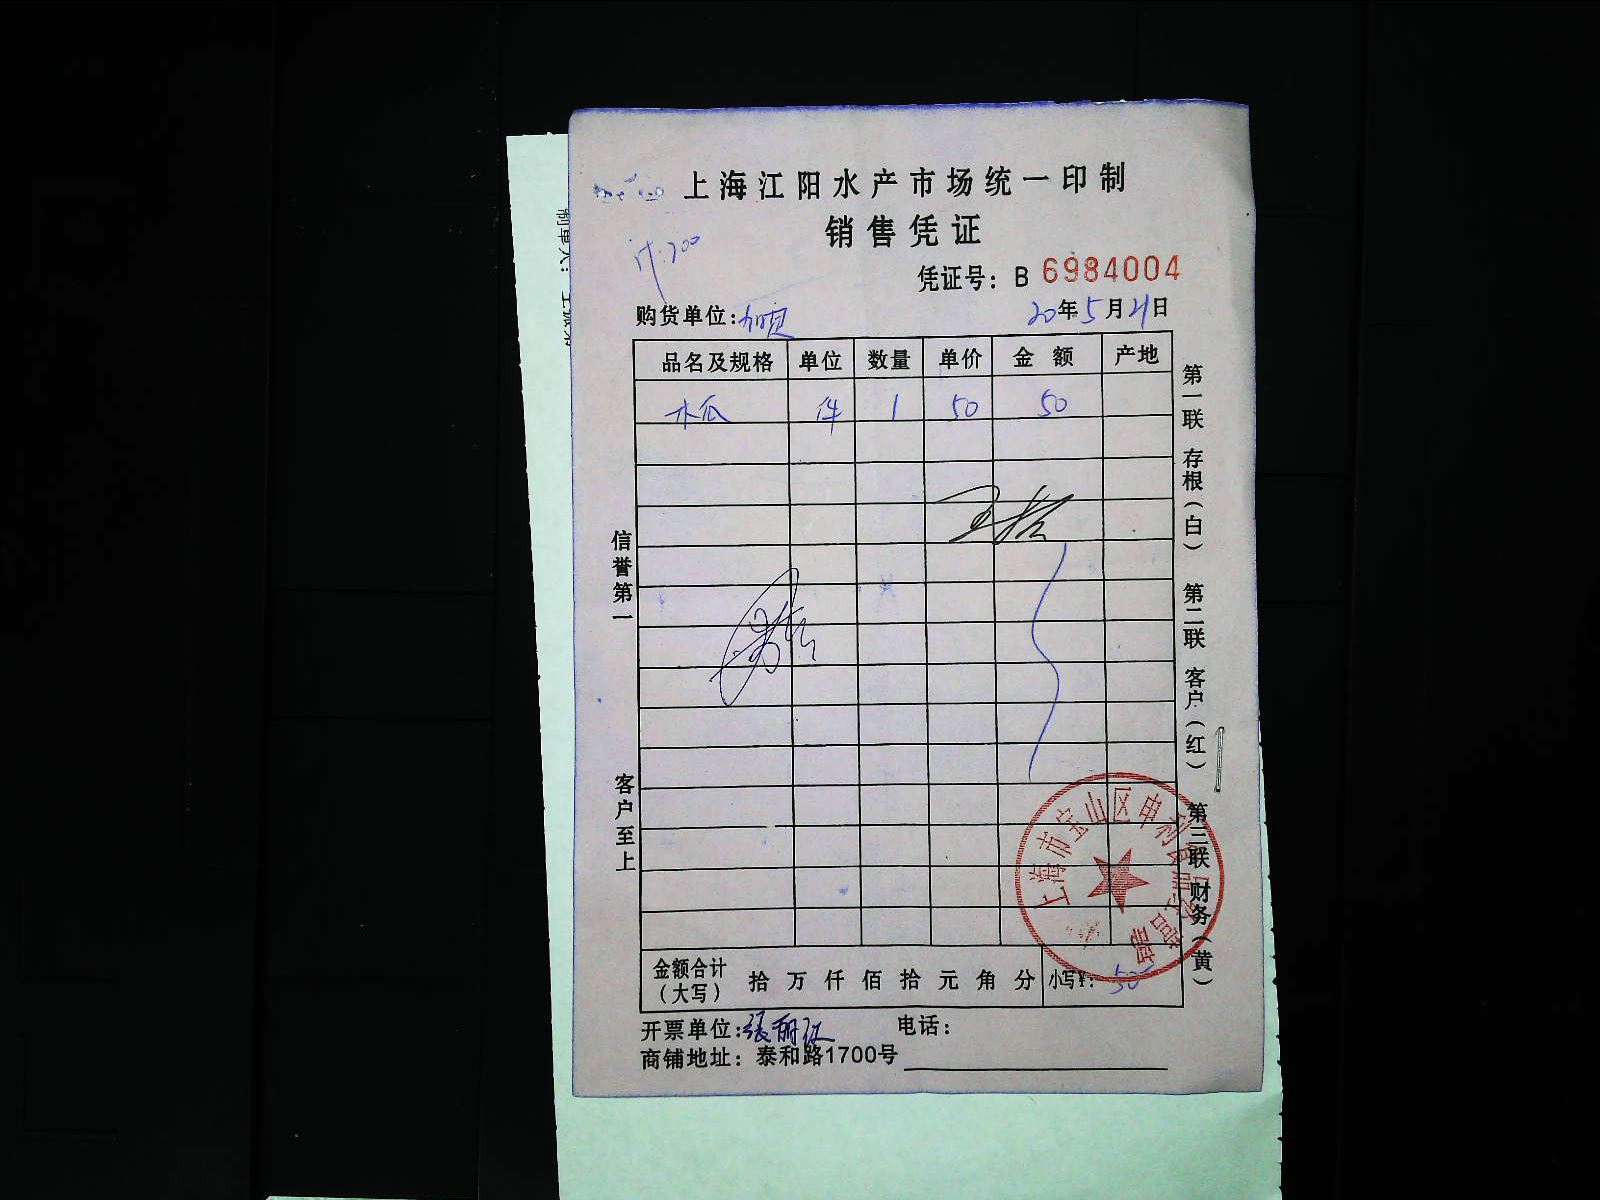 上海江阳水产市场统一印制
销售凭证
凭证号：B 6984004
购货单位：
20年5月21日
品名及规格 单位 数量 单价 金额 产地
木瓜 件 1 50 50
信誉第一
客户至上
第一联 存根（白） 第二联 客户（红） 第三联 财务（黄）
上海市宝山区申利
金额合计（大写） 拾 万 仟 佰 拾 元 角 分 小写¥：50
开票单位：张丽红 电话：
商铺地址：泰和路1700号
制单人：